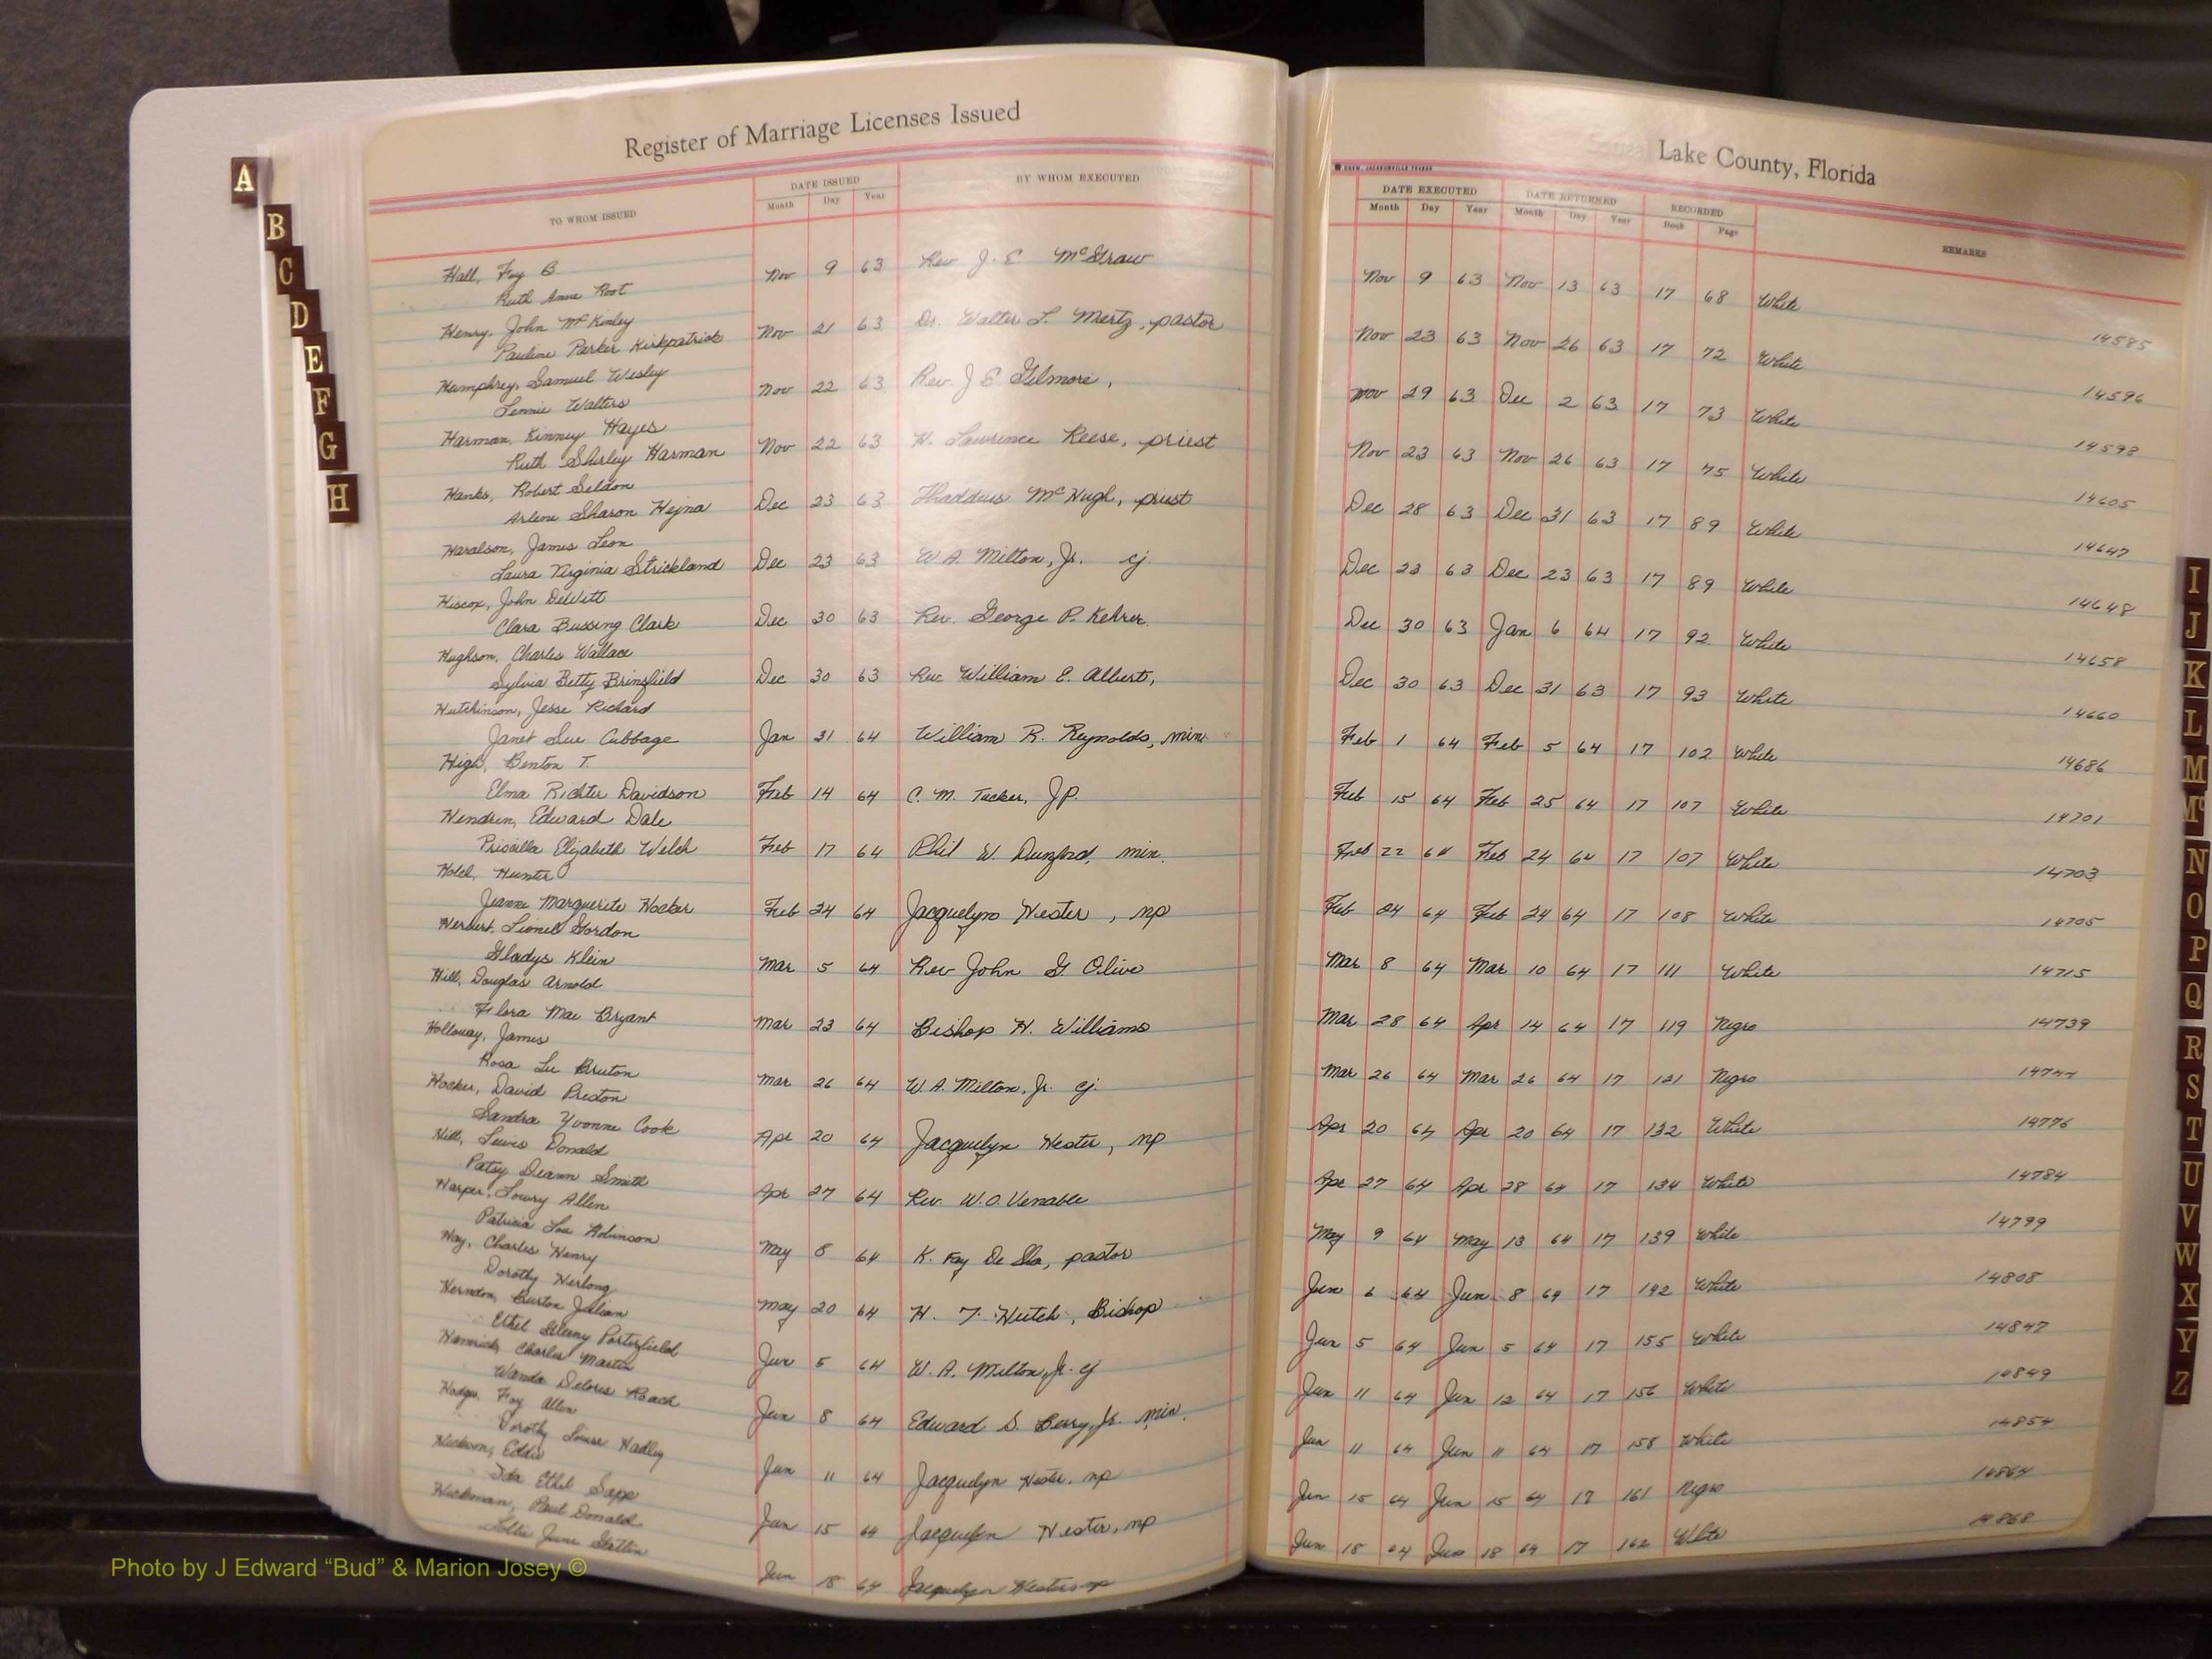 Register of Marriage Licenses Issued
TO WHOM ISSUED DATE ISSUED BY WHOM EXECUTED
Month Day Year
Hall, Foy B. Nov 9 63 Rev J. E. McGraw
Ruth Anne Root
Henry, John McKinley Nov 21 63 Dr. Walter L. Mertz, pastor
Pauline Parker Kirkpatrick
Humphrey, Samuel Wesley Nov 22 63 Rev. J E Gilmore,
Lennie Walters
Harman, Kinney Hayes Nov 22 63 H. Lawrence Reese, priest
Ruth Shirley Harman
Hanks, Robert Seldon Dec 23 63 Thaddeus McHugh, priest
Arlene Sharon Hejna
Haralson, James Leon Dec 23 63 W. A. Milton, Jr. cj.
Laura Virginia Strickland
Hiscox, John DeWitt Dec 30 63 Rev. George P. Kehrer
Clara Bussing Clark
Hughson, Charles Wallace Dec 30 63 Rev. William E. Albert,
Sylvia Betty Brinsfield
Hutchinson, Jesse Richard Jan 31 64 William R. Reynolds, min.
Janet Sue Cubbage
High, Benton T. Feb 14 64 C. M. Tucker, JP.
Elma Richter Davidson
Hendren, Edward Dale Feb 17 64 Phil W. Dunford, min.
Priscilla Elizabeth Welch
Hunter Feb 24 64 Jacquelyn Hester, np
Jeanne Marguerite Hocker
Herbert, Lionel Gordon Mar 5 64 Rev John G Olive
Gladys Klein
Hill, Douglas Arnold Mar 23 64 Bishop H. Williams
Flora Mae Bryant
Holloway, James Mar 26 64 W. A. Milton, Jr. cj.
Rosa Lee Bruton
Hocker, David Preston Apr 20 64 Jacquelyn Hester, np
Sandra Yvonne Cook
Hill, Lewis Donald Apr 27 64 Rev. W. O. Venable
Patsy Deann Smith
Harper, Lowry Allen May 8 64 K. Fay De Sha, pastor
Patricia Lou Robinson
Hay, Charles Henry May 20 64 H. T. Hutch, Bishop
Dorothy Herlong
Herndon, Burton Julian Jun 5 64 W. A. Milton, Jr. cj
Ethel Porterfield
Hamrick, Charles Martin Jun 8 64 Edward S. Berry, Jr. min.
Wanda Deloris Roach
Hodges, Foy Allen Jun 11 64 Jacquelyn Hester, np
Dorothy Louise Hadley
Hickson, Eddie Jun 15 64 Jacquelyn Hester, np
Ida Ethel Sapp
Hickman, Paul Donald Jun 18 64 Jacquelyn Hester np
June
Lake County, Florida
DATE EXECUTED DATE RETURNED RECORDED REMARKS
Month Day Year Month Day Year Book Page
Nov 9 63 Nov 13 63 17 68 White 14585
Nov 23 63 Nov 26 63 17 72 White 14596
Nov 29 63 Dec 2 63 17 73 White 14598
Nov 23 63 Nov 26 63 17 75 White 14605
Dec 28 63 Dec 31 63 17 89 White 14647
Dec 23 63 Dec 23 63 17 89 White 14648
Dec 30 63 Jan 6 64 17 92 White 14658
Dec 30 63 Dec 31 63 17 93 White 14660
Feb 1 64 Feb 5 64 17 102 White 14686
Feb 15 64 Feb 25 64 17 107 White 14701
Feb 22 64 Feb 24 64 17 107 White 14703
Feb 24 64 Feb 24 64 17 108 White 14705
Mar 8 64 Mar 10 64 17 111 White 14715
Mar 28 64 Apr 14 64 17 119 Negro 14739
Mar 26 64 Mar 26 64 17 121 Negro
Apr 20 64 Apr 20 64 17 132 White 14776
Apr 27 64 Apr 28 64 17 134 White 14784
May 9 64 May 13 64 17 139 White 14799
Jun 6 64 Jun 8 64 17 142 White 14808
Jun 5 64 Jun 5 64 17 155 White 14847
Jun 11 64 Jun 12 64 17 156 White 14849
Jun 11 64 Jun 11 64 17 158 White 14854
Jun 15 64 Jun 15 64 17 161 Negro 14864
Jun 18 64 Jun 18 64 17 162 White 14868
A
B
C
D
E
F
G
H
I
J
K
L
M
Mc
N
O
P
Q
R
S
T
U
V
W
X
Y
Z
Photo by J Edward “Bud” & Marion Josey ©